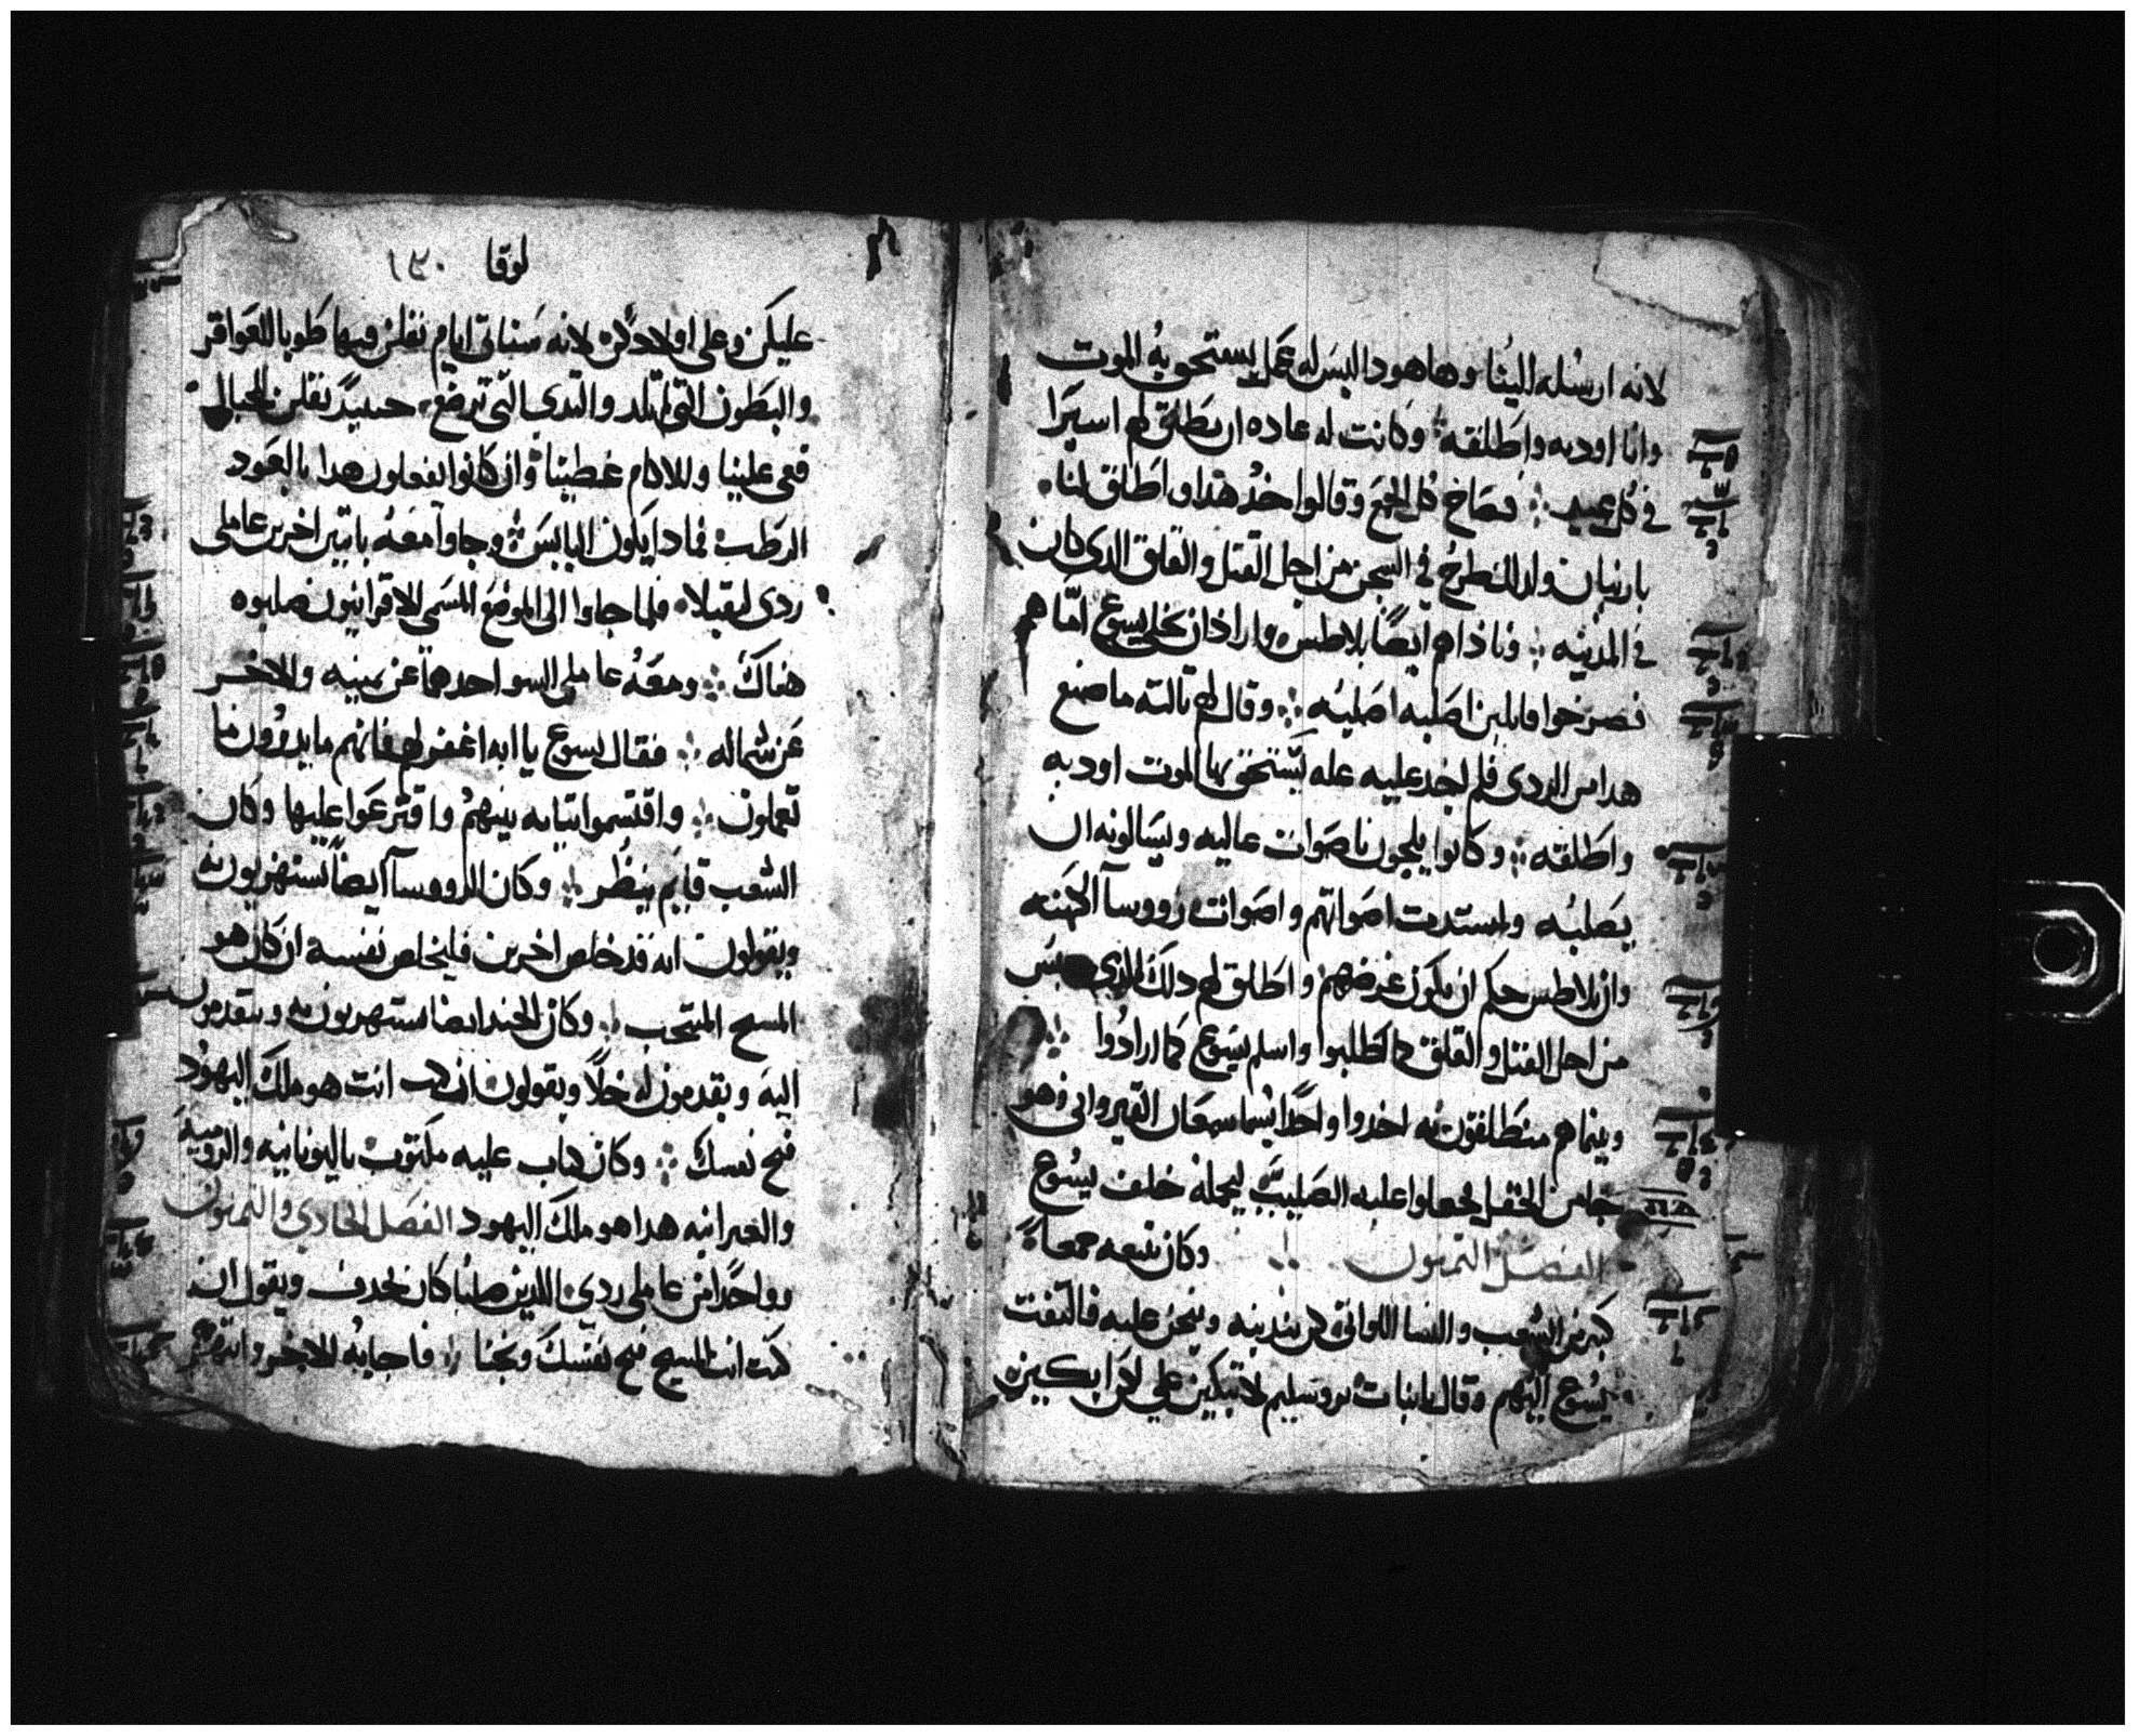 لانه ارسله الينا وها هودا ليس له عمل يستحق به الموت
وانا اودبه واطلقه وكانت له عاده ان يطلق لهم اسيرا
في كل عيد فصاخ كل الجمع وقالوا خذ هدا واطلق لنا
بارنبان ودلك طرح في السجن من اجل القتل والقلق الدي كان
في المدينه فناداهم ايضا بلاطس واراد ان يخلي يسوع اما هم
فصرخوا قايلين اصلبه اصلبه وقال لهم تالته ما صنع
هدا من الردي فلم اجد عليه عله يستحق بها الموت اودبه
واطلقه وكانوا يلجون باصوات عاليه ويسالونه ان
يصلبه واستدت اصواتهم واصوات رووسا الكهنه
وان بلاطس حكم ان يكون غرضهم واطلق لهم دلك الدي حبس
من اجل القتل والقلق كما طلبوا واسلم يسوع كما ارادوا
وبينما هم منطلقون به اخدوا واحدا يسما سمعان القيرواني وهو
جا من الحقل فجعلوا عليه الصليب ليحمله خلف يسوع
الفصل التمنون وكان تتبعه جمعا
كبير من الشعب والنسا اللواتي كن يندبنه وينحن عليه فالتفت
يسوع اليهم وقال يا بنات يروسليم لا تبكين علي لكن ابكين
لوقا ١٣٠
عليكن وعلى اولادكن لانه ستاتي ايام تقلن فيها طوبا للعواقر
والبطون التي لم تلد والتدي التي لم ترضع حينيد تقلن للجبال
قعي علينا وللاكام غطينا وان كانوا يفعلون هدا بالعود
الرطب فمادا يكون اليابس وجاوا معه باتنين اخرين عاملي
ردي ليقتلا فلما جاوا الى الموضع المسمى الاقرانيون صلبوه
هناك ومعه عاملي السو احدهما عن يمينه والاخر
عن شماله فقال يسوع يا ابه اغفر لهم فانهم ما يدرون ما
يعملون واقتسموا تيابه بينهم واقترعوا عليها وكان
الشعب قايم ينظر وكان الرووسا ايضا يستهزيون به
ويقولون انه قد خلص اخرين فليخلص نفسه ان كان هو
المسيح المنتجب وكان الجند ايضا يستهزيون به ويتقدمون
اليه ويقدمون له خلا ويقولون ان كنت انت هو ملك اليهود
فنج نفسك وكان كتاب عليه مكتوب باليونانيه والروميه
والعبرانيه هدا هو ملك اليهود الفصل الحادي والتمنون
وواحدا من عاملي ردي اللدين صلبا كان يجدف ويقول ان
كنت انت المسيح نج نفسك ونجنا فاجابه الاخر وانتهره